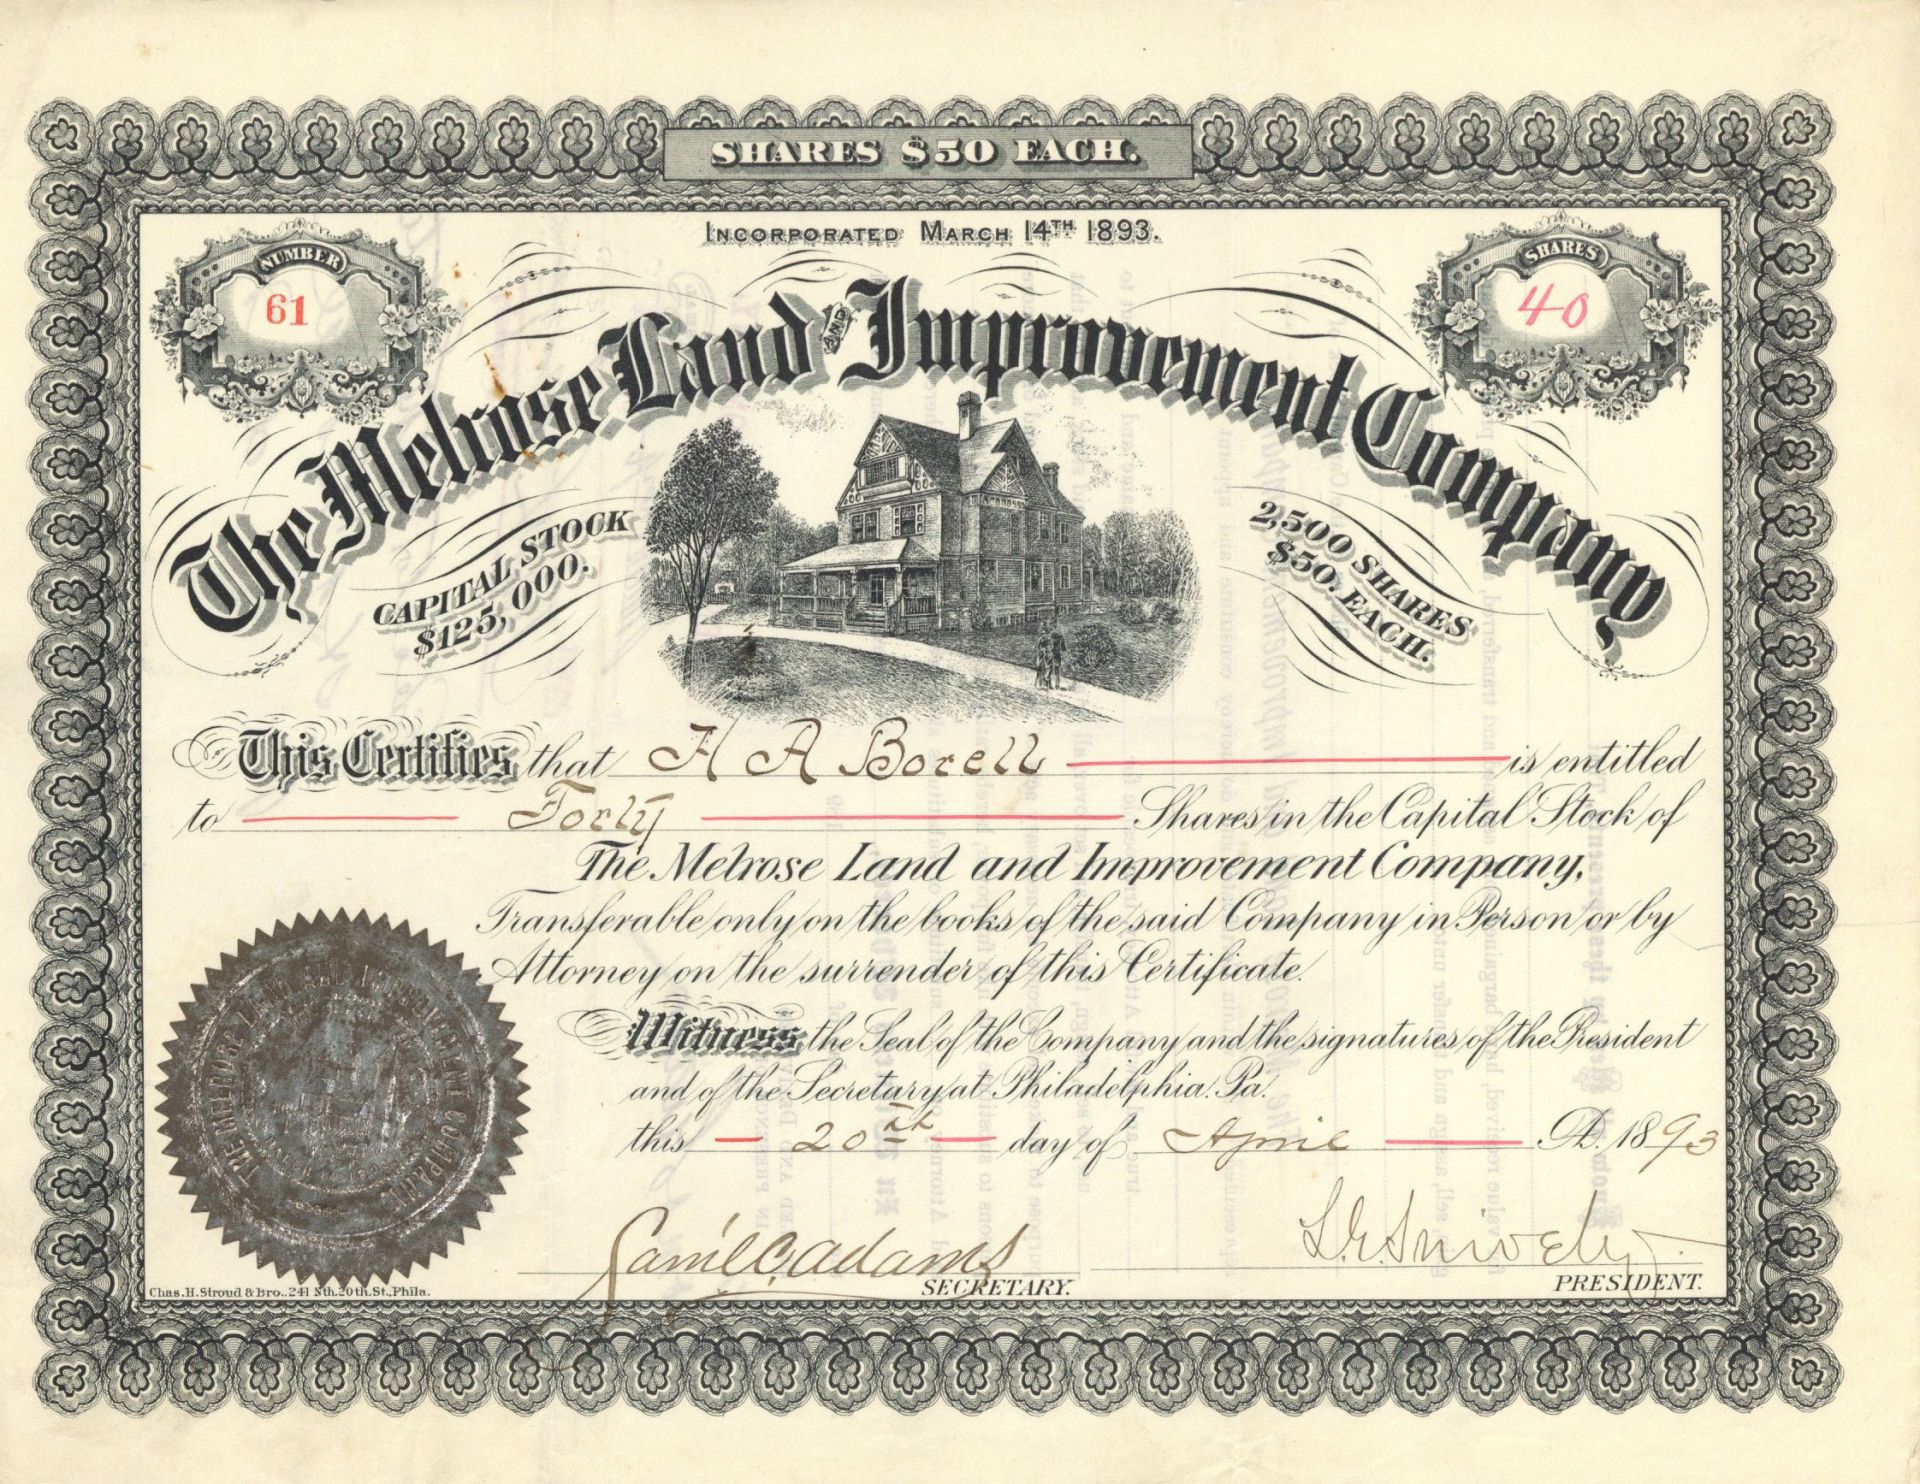 SHARES $50 EACH.
INCORPORATED MARCH 14TH 1893.
NUMBER
61
SHARES
40
The Melrose Land AND Improvement Company
CAPITAL STOCK
$125,000.
2,500 SHARES
$50. EACH.
This Certifies that H A Borell is entitled
to Forty Shares in the Capital Stock of
The Melrose Land and Improvement Company,
Transferable only on the books of the said Company in Person or by
Attorney on the surrender of this Certificate.
Witness the Seal of the Company and the signatures of the President
and of the Secretary at Philadelphia. Pa.
this 20th day of April A.D. 1893
THE MELROSE LAND AND IMPROVEMENT COMPANY
Sam'l C. Adams
SECRETARY.
L. E. Snively
PRESIDENT.
Chas. H. Stroud & Bro., 241 Nth. 20th. St., Phila.